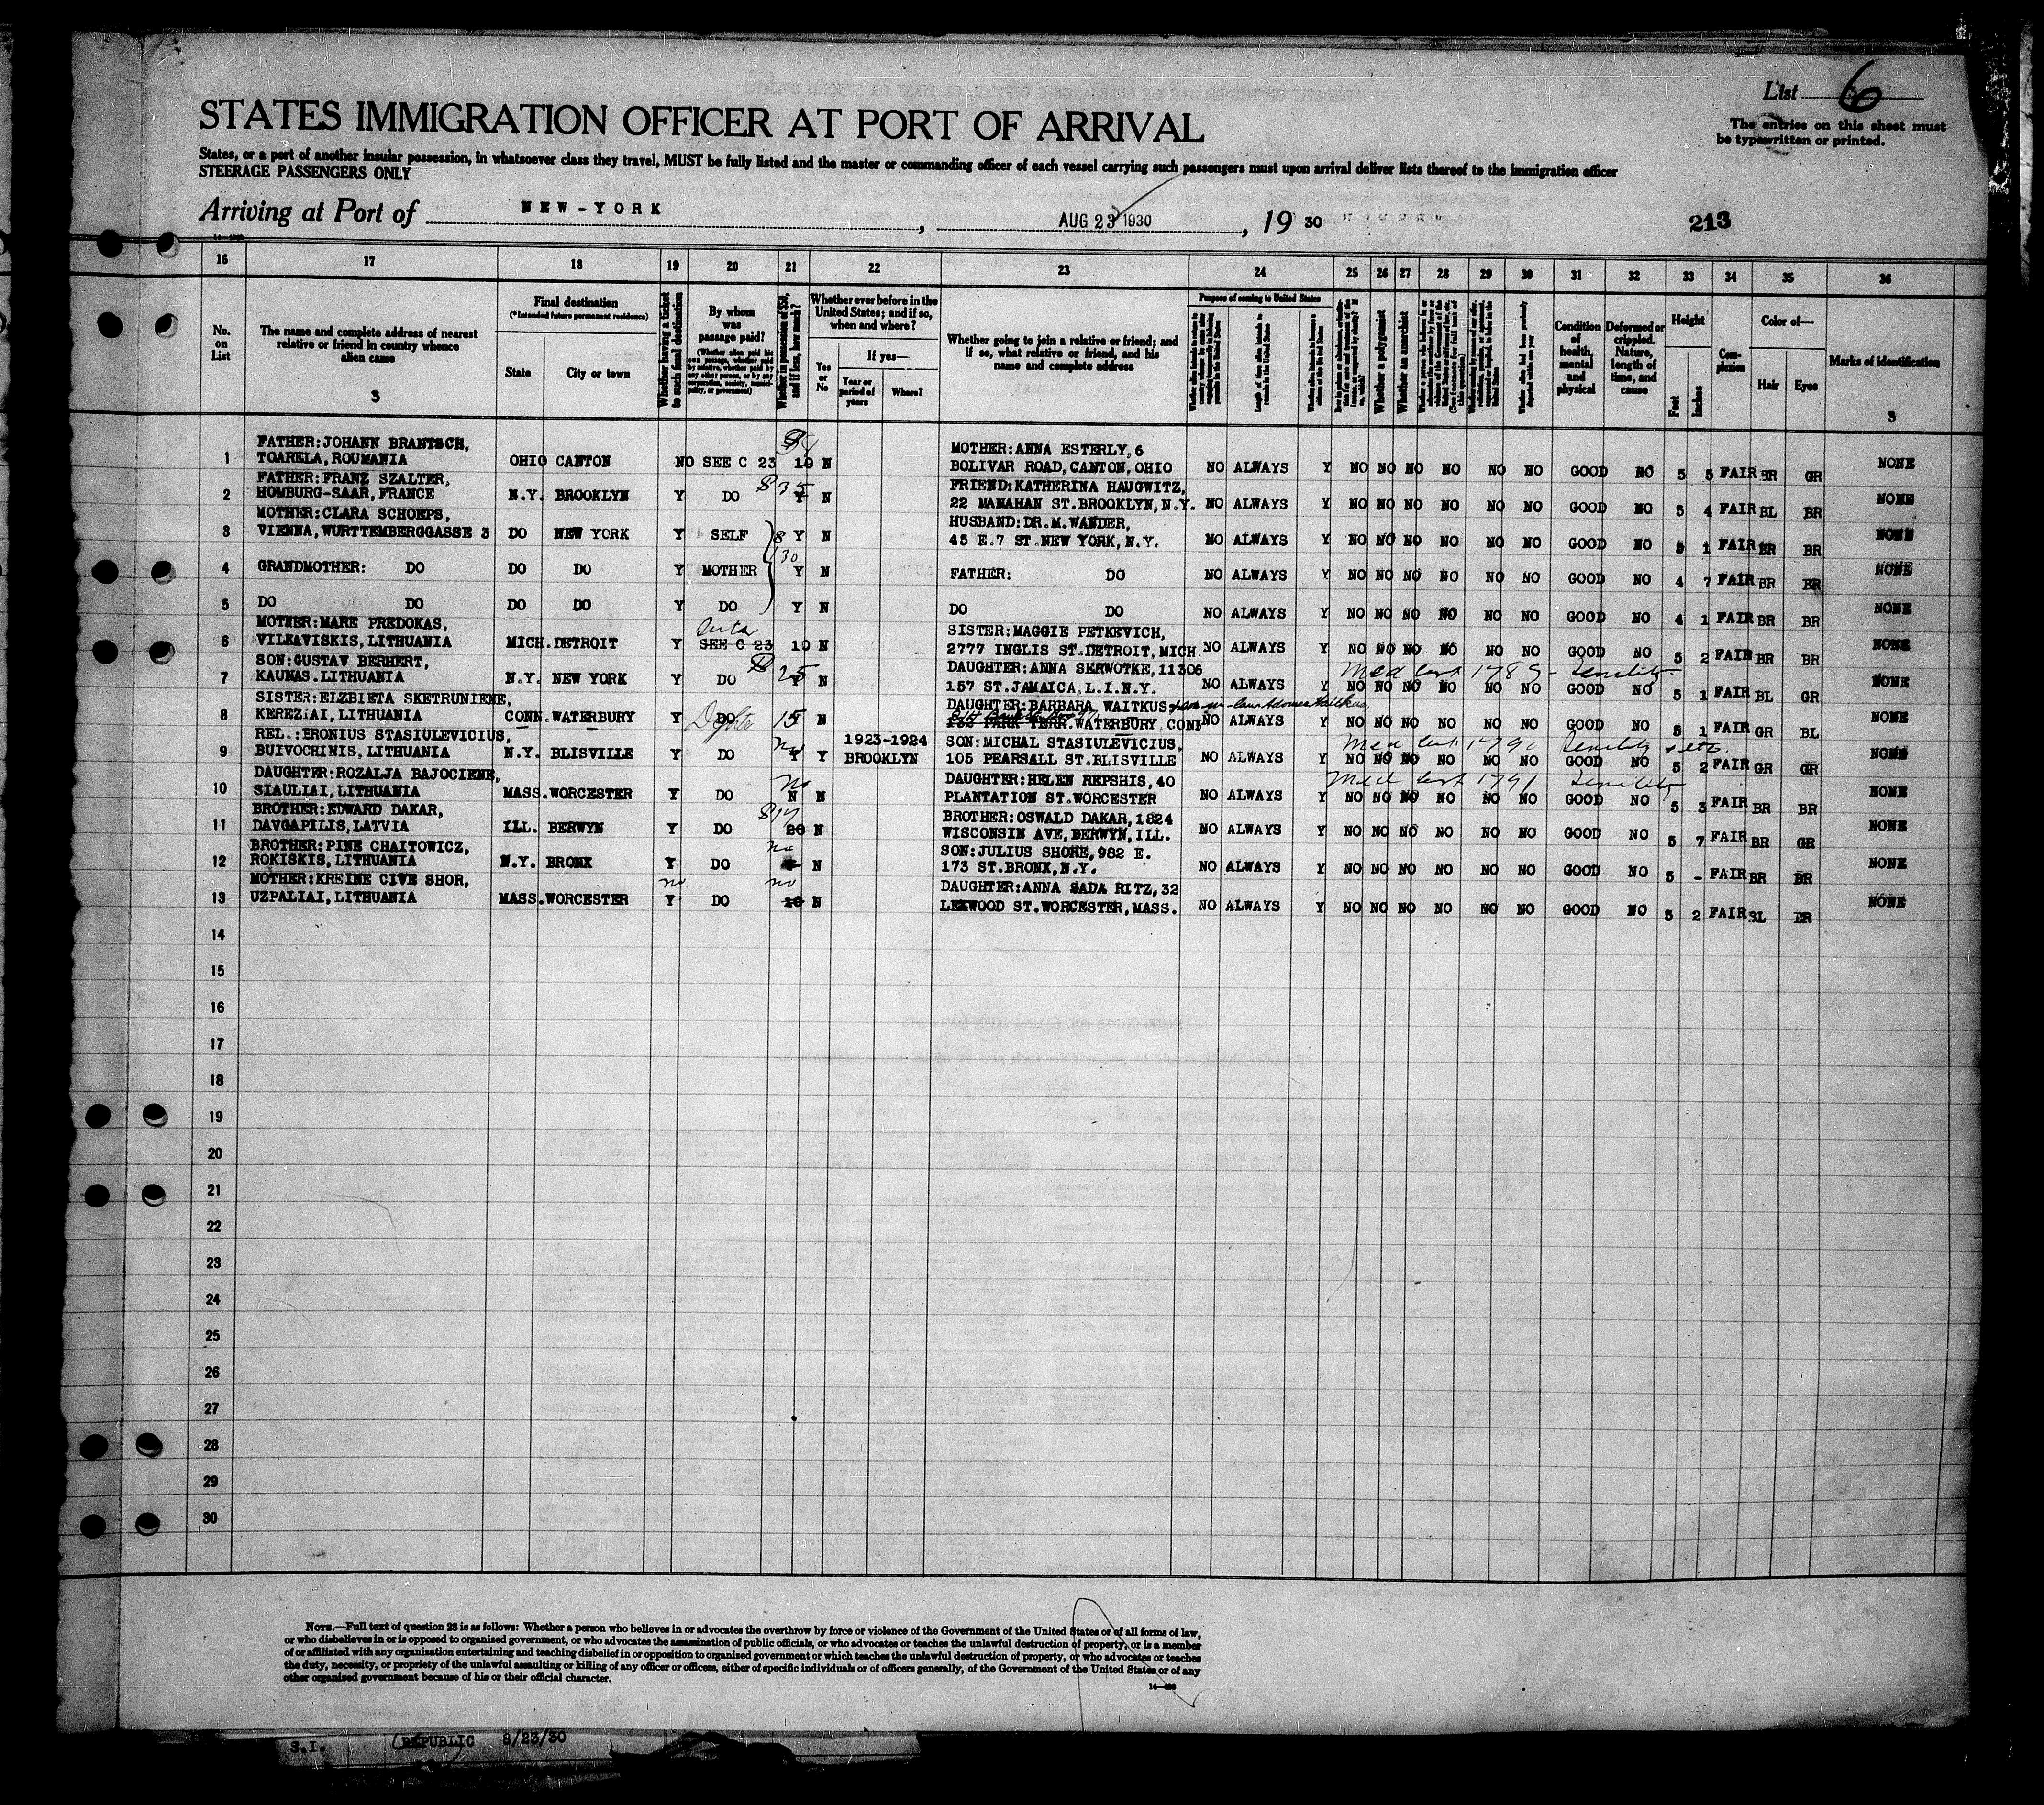 List 6
The entries on this sheet must
be typewritten or printed.
STATES IMMIGRATION OFFICER AT PORT OF ARRIVAL
States, or a port of another insular possession, in whatsoever class they travel, MUST be fully listed and the master or commanding officer of each vessel carrying such passengers must upon arrival deliver lists thereof to the immigration officer
STEERAGE PASSENGERS ONLY
Arriving at Port of NEW-YORK, AUG 23 1930, 19 30
213
16 17 18 19 20 21 22 23 24 25 26 27 28 29 30 31 32 33 34 35 36
No. on List
The name and complete address of nearest
relative or friend in country whence
alien came
3
Final destination
(*Intended future permanent residence)
State
City or town
Whether having a ticket
to such final destination
By whom
was
passage paid?
(Whether alien paid his
own passage, whether paid
by relative, whether paid by
any other person, or by any
corporation, society, munici-
pality, or government)
Whether in possession of $50,
and if less, how much?
Whether ever before in the
United States; and if so,
when and where?
Yes
or
No
If yes—
Year or
period of
years
Where?
Whether going to join a relative or friend; and
if so, what relative or friend, and his
name and complete address
Purpose of coming to United States
Whether a polygamist
Whether an anarchist
Condition
of
health,
mental
and
physical
Deformed or
crippled.
Nature,
length of
time, and
cause
Height
Feet
Inches
Com-
plexion
Color of—
Hair
Eyes
Marks of identification
3
FATHER:JOHANN BRANTSCH, MOTHER:ANNA ESTERLY,6
1 TOARKLA,ROUMANIA OHIO CANTON NO SEE C 23 10 N BOLIVAR ROAD,CANTON,OHIO NO ALWAYS Y NO NO NO NO NO NO GOOD NO 5 5 FAIR BR GR NONE
FATHER:FRANZ SZALTER, $35 FRIEND:KATHERINA HAUGWITZ,
2 HOMBURG-SAAR,FRANCE N.Y. BROOKLYN Y DO Y N 22 MANAHAN ST.BROOKLYN,N.Y. NO ALWAYS Y NO NO NO NO NO NO GOOD NO 5 4 FAIR BL BR NONE
MOTHER:CLARA SCHOEPS, HUSBAND:DR.M.WANDER,
3 VIENNA,WURTTEMBERGGASSE 3 DO NEW YORK Y SELF $ Y N 45 E.7 ST.NEW YORK,N.Y. NO ALWAYS Y NO NO NO NO NO NO GOOD NO 5 1 FAIR BR BR NONE
130
4 GRANDMOTHER: DO DO DO Y MOTHER Y N FATHER: DO NO ALWAYS Y NO NO NO NO NO NO GOOD NO 4 7 FAIR BR BR NONE
5 DO DO DO DO Y DO Y N DO DO NO ALWAYS Y NO NO NO NO NO NO GOOD NO 4 1 FAIR BR BR NONE
MOTHER:MARE PREDOKAS, SISTER:MAGGIE PETKEVICH,
6 VILKAVISKIS,LITHUANIA MICH.DETROIT Y SEE C 23 10 N 2777 INGLIS ST.DETROIT,MICH. NO ALWAYS Y NO NO NO NO NO NO GOOD NO 5 2 FAIR BR BR NONE
SON:GUSTAV BERHERT, $25 DAUGHTER:ANNA SERWOTKE,11306 Med cert 1789 - Senility
7 KAUNAS.LITHUANIA N.Y. NEW YORK Y DO Y N 157 ST.JAMAICA,L.I.N.Y. NO ALWAYS Y NO NO NO NO NO NO GOOD NO 5 1 FAIR BL GR NONE
SISTER:ELZBIETA SKETRUNIENE, DAUGHTER:BARBARA WAITKUS
8 KEREZIAI,LITHUANIA CONN.WATERBURY Y DO 15 N PARK TERR.WATERBURY,CONN NO ALWAYS Y NO NO NO NO NO NO GOOD NO 5 1 FAIR GR BL NONE
REL.:BRONIUS STASIULEVICIUS, no 1923-1924 SON:MICHAL STASIULEVICIUS, Med cert 1790 Senility + etc.
9 BUIVOCHINIS,LITHUANIA N.Y. BLISVILLE Y DO Y Y BROOKLYN 105 PEARSALL ST.BLISVILLE NO ALWAYS Y NO NO NO NO NO NO GOOD NO 5 2 FAIR GR GR NONE
DAUGHTER:ROZALJA BAJOCIENE, No DAUGHTER:HELEN REPSHIS,40 Med cert 1791 Senility
10 SIAULIAI,LITHUANIA MASS.WORCESTER Y DO N N PLANTATION ST.WORCESTER NO ALWAYS Y NO NO NO NO NO NO GOOD NO 5 3 FAIR BR BR NONE
BROTHER:EDWARD DAKAR, BROTHER:OSWALD DAKAR,1824
11 DAVGAPILIS,LATVIA ILL. BERWYN Y DO 20 N WISCONSIN AVE,BERWYN,ILL. NO ALWAYS Y NO NO NO NO NO NO GOOD NO 5 7 FAIR BR GR NONE
BROTHER:PINE CHAITOWICZ, no SON:JULIUS SHORE,982 E.
12 ROKISKIS,LITHUANIA N.Y. BRONX Y DO N 173 ST.BRONX,N.Y. NO ALWAYS Y NO NO NO NO NO NO GOOD NO 5 - FAIR BR BR NONE
MOTHER:KREINE CIVE SHOR, no no DAUGHTER:ANNA SADA RITZ,32
13 UZPALIAI,LITHUANIA MASS.WORCESTER Y DO 10 N LEXWOOD ST.WORCESTER,MASS. NO ALWAYS Y NO NO NO NO NO NO GOOD NO 5 2 FAIR BR NONE
14
15
16
17
18
19
20
21
22
23
24
25
26
27
28
29
30
NOTE.—Full text of question 28 is as follows: Whether a person who believes in or advocates the overthrow by force or violence of the Government of the United States or of all forms of law,
or who disbelieves in or is opposed to organized government, or who advocates the assassination of public officials, or who advocates or teaches the unlawful destruction of property, or is a member
of or affiliated with any organization entertaining and teaching disbelief in or opposition to organized government or which teaches the unlawful destruction of property, or who advocates or teaches
the duty, necessity, or propriety of the unlawful assaulting or killing of any officer or officers, either of specific individuals or of officers generally, of the Government of the United States or of any
other organized government because of his or their official character.
S.I. REPUBLIC 8/23/30